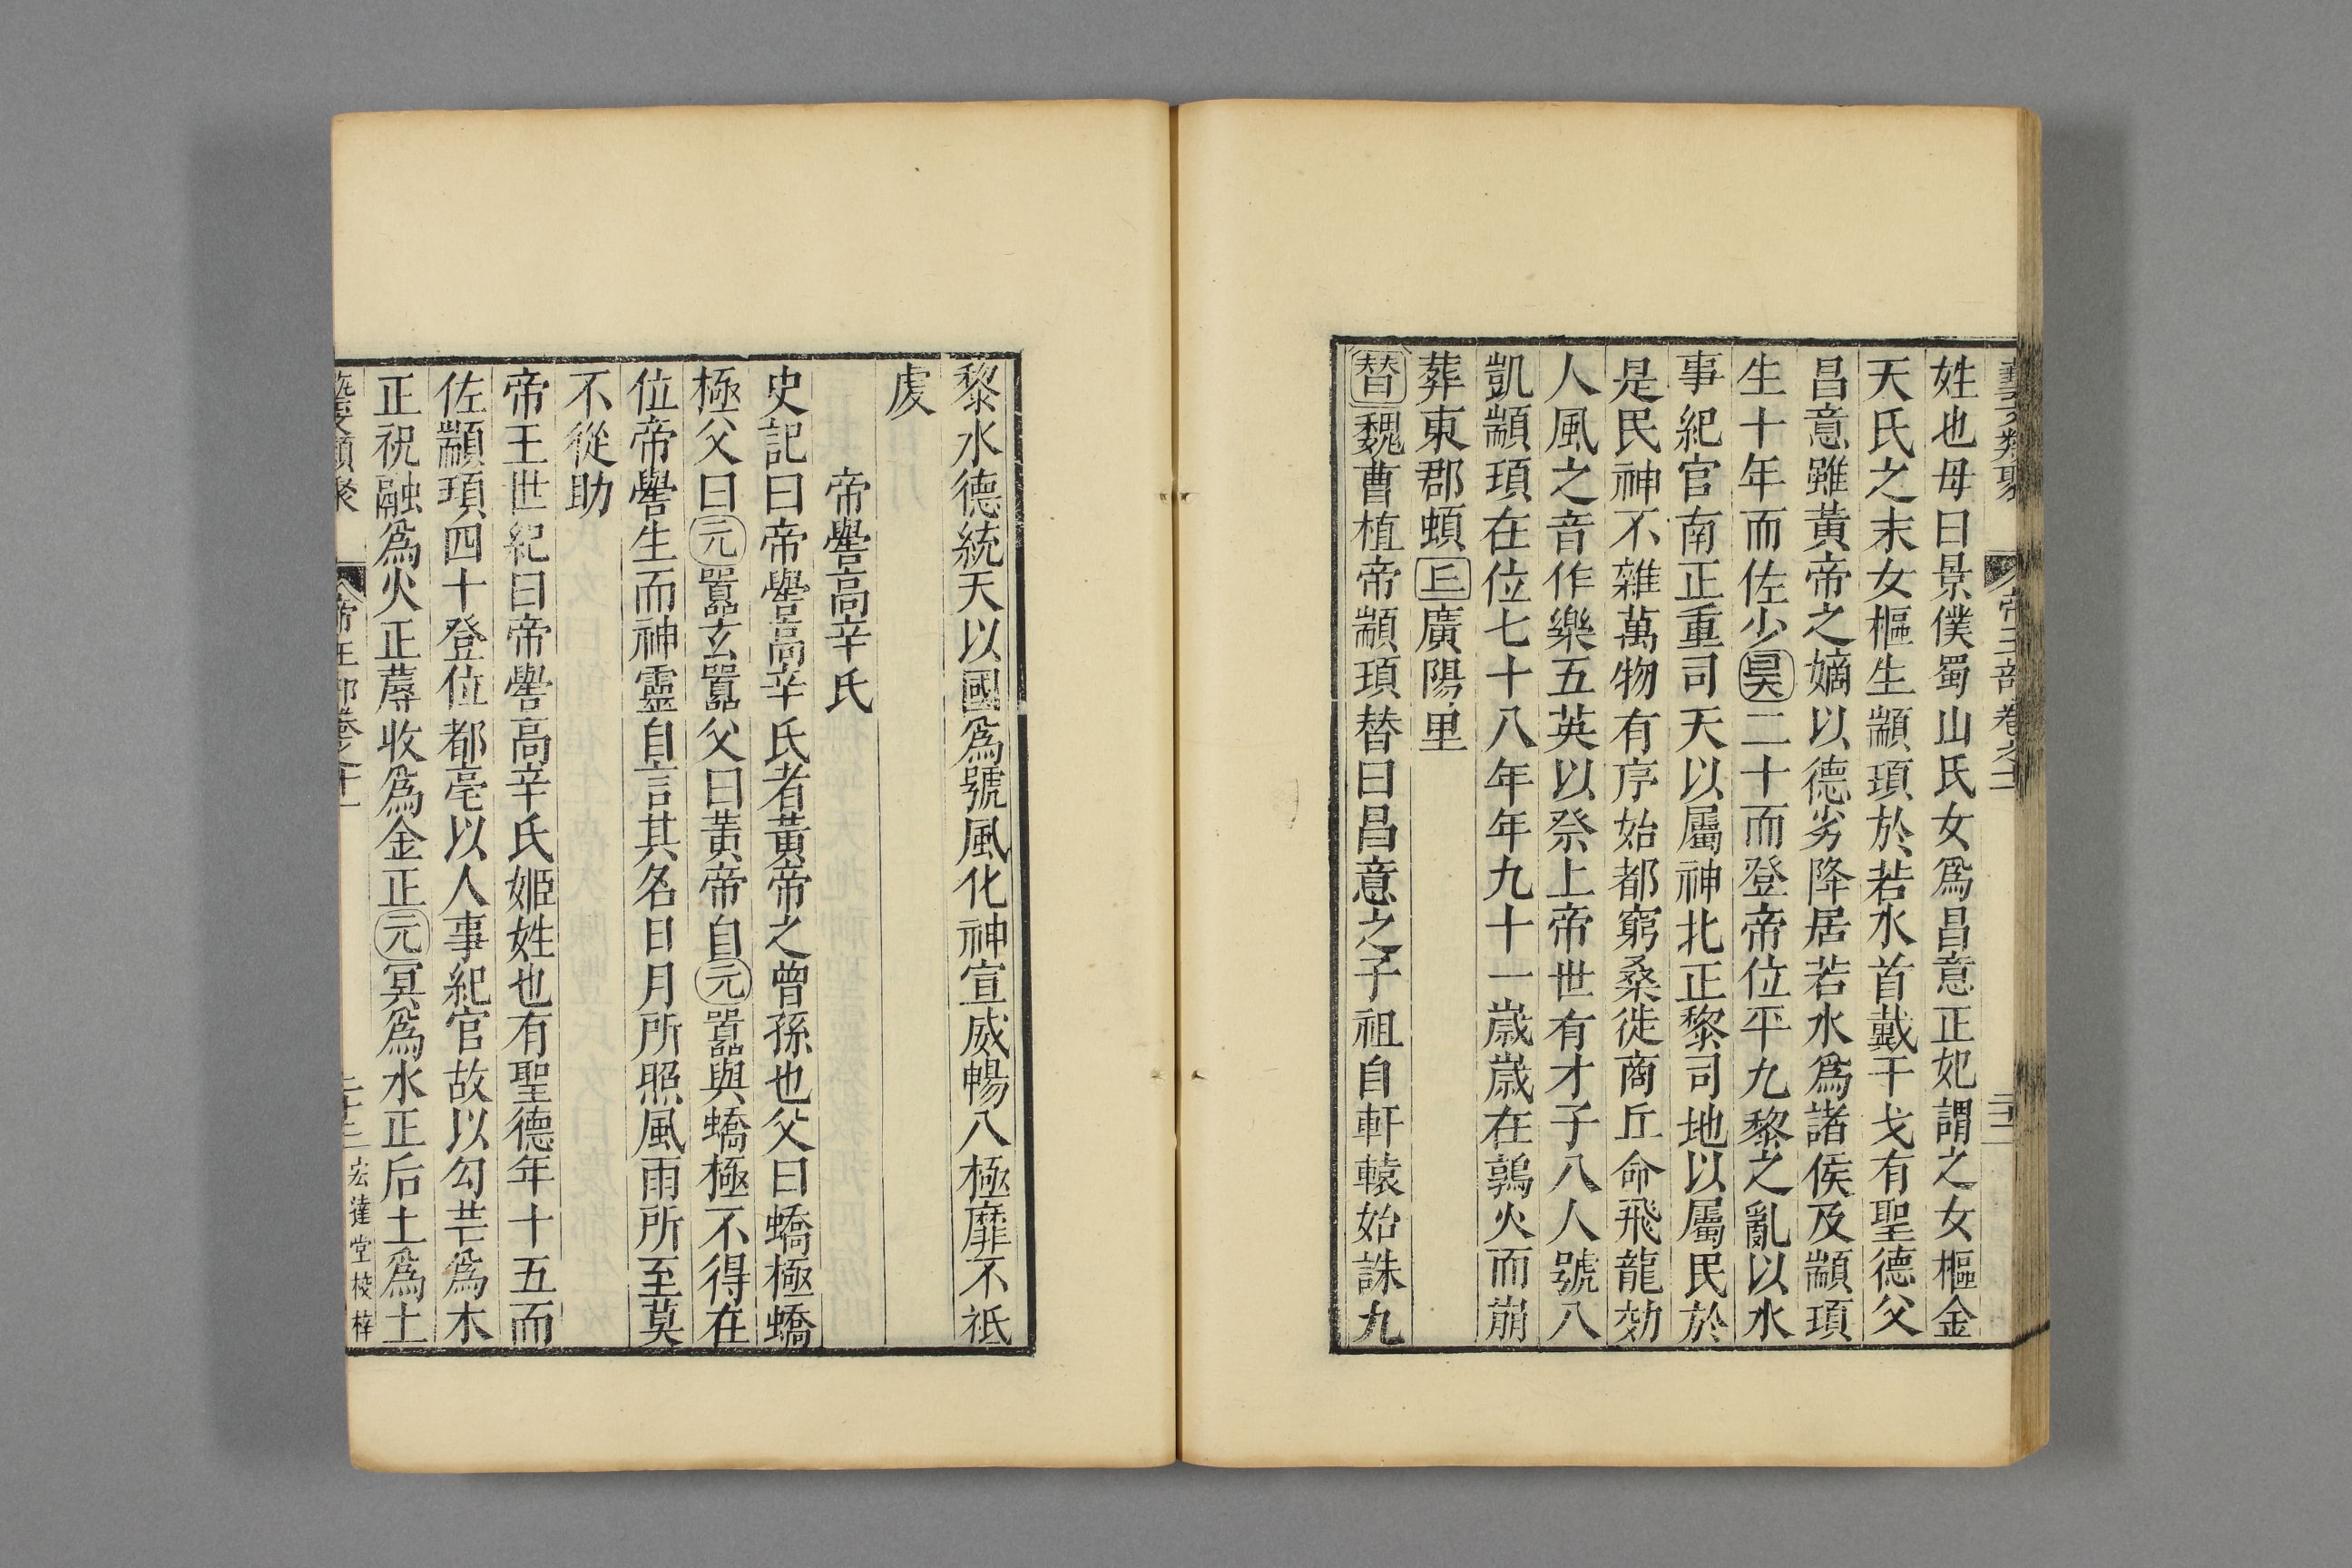 藝文類聚 帝王部卷之十一 二十二
姓也母曰景僕蜀山氏女爲昌意正妃謂之女樞金
天氏之末女樞生顓頊於若水首戴干戈有聖德父
昌意雖黃帝之嫡以德劣降居若水爲諸侯及顓頊
生十年而佐少昊二十而登帝位平九黎之亂以水
事紀官南正重司天以屬神北正黎司地以屬民於
是民神不雜萬物有序始都窮桑徙商丘命飛龍効
八風之音作樂五英以祭上帝世有才子八人號八
凱顓頊在位七十八年年九十一歲歲在鶉火而崩
葬東郡頓丘廣陽里
替魏曹植帝顓頊替曰昌意之子祖自軒轅始誅九
黎水德統天以國爲號風化神宣威暢八極靡不祗
虔
帝嚳高辛氏
史記曰帝嚳高辛氏者黃帝之曾孫也父曰蟜極蟜
極父曰元囂玄囂父曰黃帝自元囂與蟜極不得在
位帝嚳生而神靈自言其名日月所照風雨所至莫
不從助
帝王世紀曰帝嚳高辛氏姬姓也有聖德年十五而
佐顓頊四十登位都亳以人事紀官故以勾芒爲木
正祝融爲火正蓐收爲金正元冥爲水正后土爲土
藝文類聚 帝王部卷之十一 二十三 宏達堂校梓